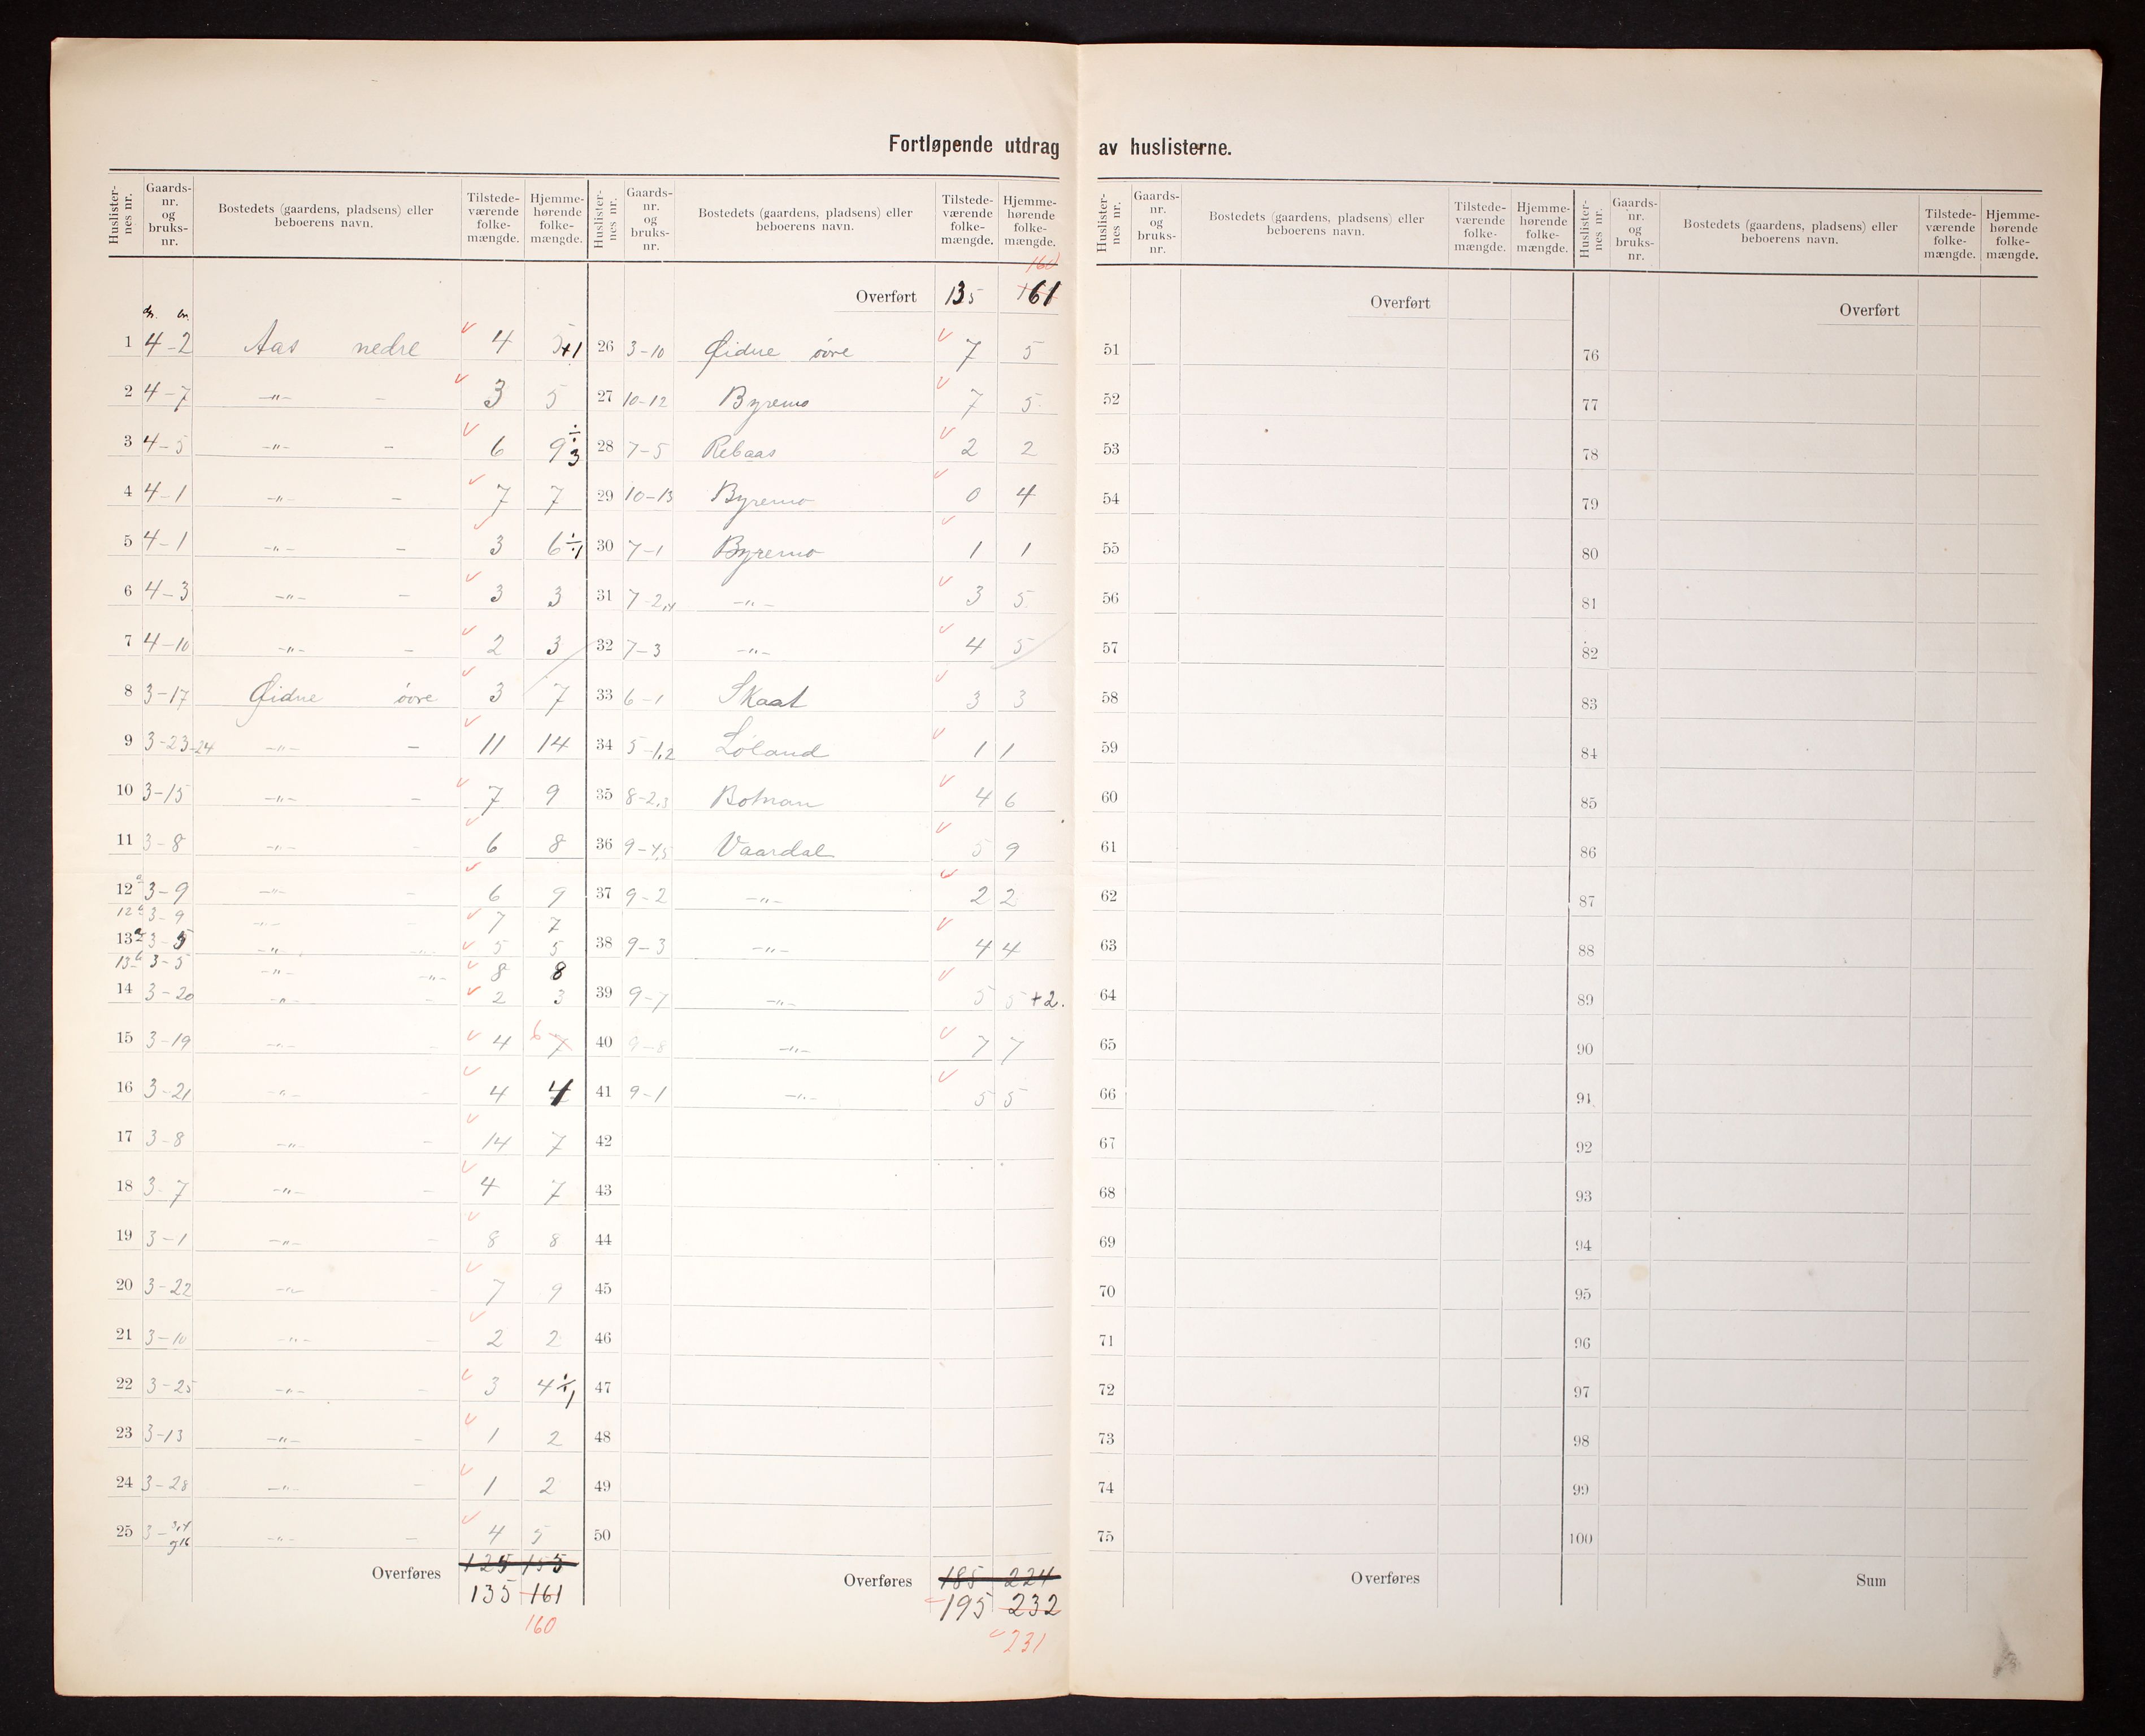 Fortløpende utdrag av huslisterne.
Huslister-nes nr. Gaards-nr. og bruks-nr. Bostedets (gaardens, pladsens) eller beboerens navn. Tilstede-værende folke-mængde. Hjemme-hørende folke-mængde.
1 4-2 Aas nedre 4 5+1
2 4-7 -"- - 3 5
3 4-5 -"- - 6 9÷3
4 4-1 -"- - 7 7
5 4-1 -"- - 3 6÷1
6 4-3 -"- - 3 3
7 4-10 -"- - 2 3
8 3-17 Øidne övre 3 7
9 3-23-24 -"- - 11 14
10 3-15 -"- - 7 9
11 3-8 -"- - 6 8
12a 3-9 -"- - 6 9
12b 3-9 -"- - 7 7
13a 3-5 -"- -"- 5 5
13b 3-5 -"- -"- 8 8
14 3-20 -"- - 2 3
15 3-19 -"- - 4 6 7
16 3-21 -"- - 4 4
17 3-8 -"- - 14 7
18 3-7 -"- - 4 7
19 3-1 -"- - 8 8
20 3-22 -"- - 7 9
21 3-10 -"- - 2 2
22 3-25 -"- - 3 4÷1
23 3-13 -"- - 1 2
24 3-28 -"- - 1 2
25 3-3,4 og 16 -"- - 4 5
Overføres 125 155
135 161
160
Huslister-nes nr. Gaards-nr. og bruks-nr. Bostedets (gaardens, pladsens) eller beboerens navn. Tilstede-værende folke-mængde. Hjemme-hørende folke-mængde.
160
Overført 135 161
26 3-10 Øidne övre 7 5
27 10-12 Byremo 7 5
28 7-5 Rebaas 2 2
29 10-13 Byremo 0 4
30 7-1 Byremo 1 1
31 7-2,4 -"- 3 5
32 7-3 -"- 4 5
33 6-1 Skaat 3 3
34 5-1,2 Löland 1 1
35 8-2,3 Botnan 4 6
36 9-4,5 Vaardal 5 9
37 9-2 -"- 2 2
38 9-3 -"- 4 4
39 9-7 -"- 5 5+2.
40 9-8 -"- 7 7
41 9-1 -"- 5 5
42
43
44
45
46
47
48
49
50
Overføres 185 224
195 232
231
Huslister-nes nr. Gaards-nr. og bruks-nr. Bostedets (gaardens, pladsens) eller beboerens navn. Tilstede-værende folke-mængde. Hjemme-hørende folke-mængde.
Overført
51
52
53
54
55
56
57
58
59
60
61
62
63
64
65
66
67
68
69
70
71
72
73
74
75
Overføres
Huslister-nes nr. Gaards-nr. og bruks-nr. Bostedets (gaardens, pladsens) eller beboerens navn. Tilstede-værende folke-mængde. Hjemme-hørende folke-mængde.
Overført
76
77
78
79
80
81
82
83
84
85
86
87
88
89
90
91
92
93
94
95
96
97
98
99
100
Sum